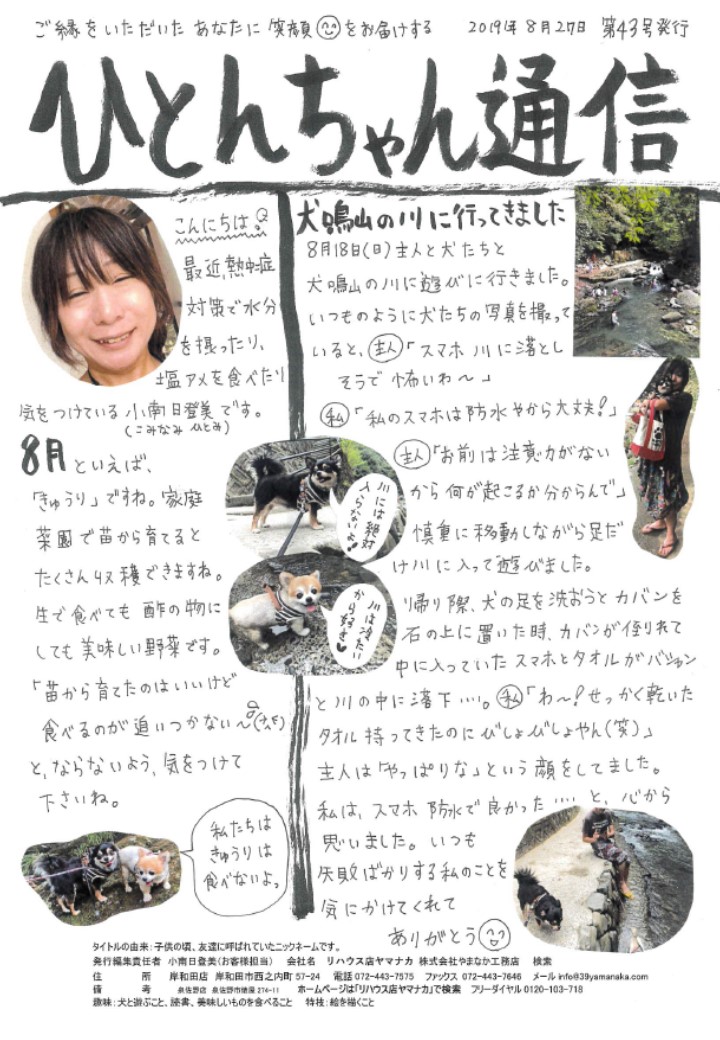 ご縁をいただいた あなたに 笑顔をお届けする 2019年8月27日 第43号発行
ひとんちゃん通信
こんにちは。
最近熱中症
対策で水分
を摂ったり、
塩アメを食べたり
気をつけている 小南日登美です。
(こみなみ ひとみ)
8月といえば、
「きゅうり」ですね。家庭
菜園で苗から育てると
たくさん収穫できますね。
生で食べても 酢の物に
しても美味しい野菜です。
「苗から育てたのはいいけど
食べるのが追いつかない〜
と、ならないよう、気をつけて
下さいね。
私たちは
きゅうりは
食べないよっ
犬鳴山の川に行ってきました
8月18日(日)主人と犬たちと
犬鳴山の川に遊びに行きました。
いつものように犬たちの写真を撮って
いると、主人「スマホ 川に落とし
そうで怖いわ〜」
私「私のスマホは防水やから大丈夫!」
主人「お前は注意力がない
から何が起こるか分からんで」
慎重に移動しながら足だ
け川に入って遊びました。
川には絶対
入らないよ!
川は冷たい
から好き♥
帰り際、犬の足を洗おうとカバンを
石の上に置いた時、カバンが倒れて
中に入っていたスマホとタオルがバシャン
と川の中に落下…。私「わ〜!せっかく乾いた
タオル持ってきたのにびしょびしょやん(笑)」
主人は「やっぱりな」という顔をしてました。
私は、スマホ防水で良かった…と、心から
思いました。いつも
失敗ばかりする私のことを
気にかけてくれて
ありがとう
タイトルの由来:子供の頃、友達に呼ばれていたニックネームです。
発行編集責任者 小南日登美(お客様担当) 会社名 リハウス店ヤマナカ 株式会社やまなか工務店 検索
住 所 岸和田店 岸和田市西之内町57-24 電話072-443-7575 ファックス 072-443-7646 メールinfo@39yamanaka.com
備 考 泉佐野店 泉佐野市 274-11 ホームページは「リハウス店ヤマナカ」で検索 フリーダイヤル0120-103-718
趣味:犬と遊ぶこと、読書、美味しいものを食べること 特技:絵を描くこと